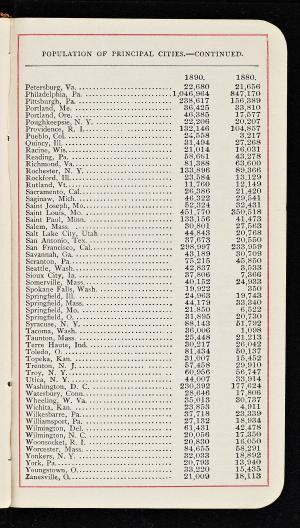 POPULATION OF PRINCIPAL CITIES.—CONTINUED.
1890. 1880.
Petersburg, Va. 22,680 21,656
Philadelphia, Pa. 1,046,964 847,170
Pittsburgh, Pa. 238,617 156,389
Portland, Me. 36,425 33,810
Portland, Ore. 46,385 17,577
Poughkeepsie, N. Y. 22,206 20,207
Providence, R. I. 132,146 104,857
Pueblo, Col. 24,558 3,217
Quincy, Ill. 31,494 27,268
Racine, Wis. 21,014 16,031
Reading, Pa. 58,661 43,278
Richmond, Va. 81,388 63,600
Rochester, N. Y. 133,896 89,366
Rockford, Ill. 23,584 13,129
Rutland, Vt. 11,760 12,149
Sacramento, Cal. 26,386 21,420
Saginaw, Mich. 46,322 29,541
Saint Joseph, Mo. 52,324 32,431
Saint Louis, Mo. 451,770 350,518
Saint Paul, Minn. 133,156 41,473
Salem, Mass. 30,801 27,563
Salt Lake City, Utah 44,843 20,768
San Antonio, Tex. 37,673 20,550
San Francisco, Cal. 298,997 233,959
Savannah, Ga. 43,189 30,709
Scranton, Pa. 75,215 45,850
Seattle, Wash. 42,837 3,533
Sioux City, Ia. 37,806 7,366
Somerville, Mass. 40,152 24,933
Spokane Falls, Wash. 19,922 350
Springfield, Ill. 24,963 19,743
Springfield, Mass. 44,179 33,340
Springfield, Mo. 21,850 6,522
Springfield, O. 31,895 20,730
Syracuse, N. Y. 88,143 51,792
Tacoma, Wash. 36,006 1,098
Taunton, Mass. 25,448 21,213
Terre Haute, Ind. 30,217 26,042
Toledo, O. 81,434 50,137
Topeka, Kan. 31,007 15,452
Trenton, N. J. 57,458 29,910
Troy, N. Y. 60,956 56,747
Utica, N. Y. 44,007 33,914
Washington, D. C. 230,392 177,624
Waterbury, Conn. 28,646 17,806
Wheeling, W. Va. 35,013 30,737
Wichita, Kan. 23,853 4,911
Wilkesbarre, Pa. 37,718 23,339
Williamsport, Pa. 27,132 18,934
Wilmington, Del. 61,431 42,478
Wilmington, N. C. 20,056 17,350
Woonsocket, R. I. 20,830 16,050
Worcester, Mass. 84,655 58,291
Yonkers, N. Y. 32,033 18,892
York, Pa. 20,793 13,940
Youngstown, O. 33,220 15,435
Zanesville, O. 21,009 18,113